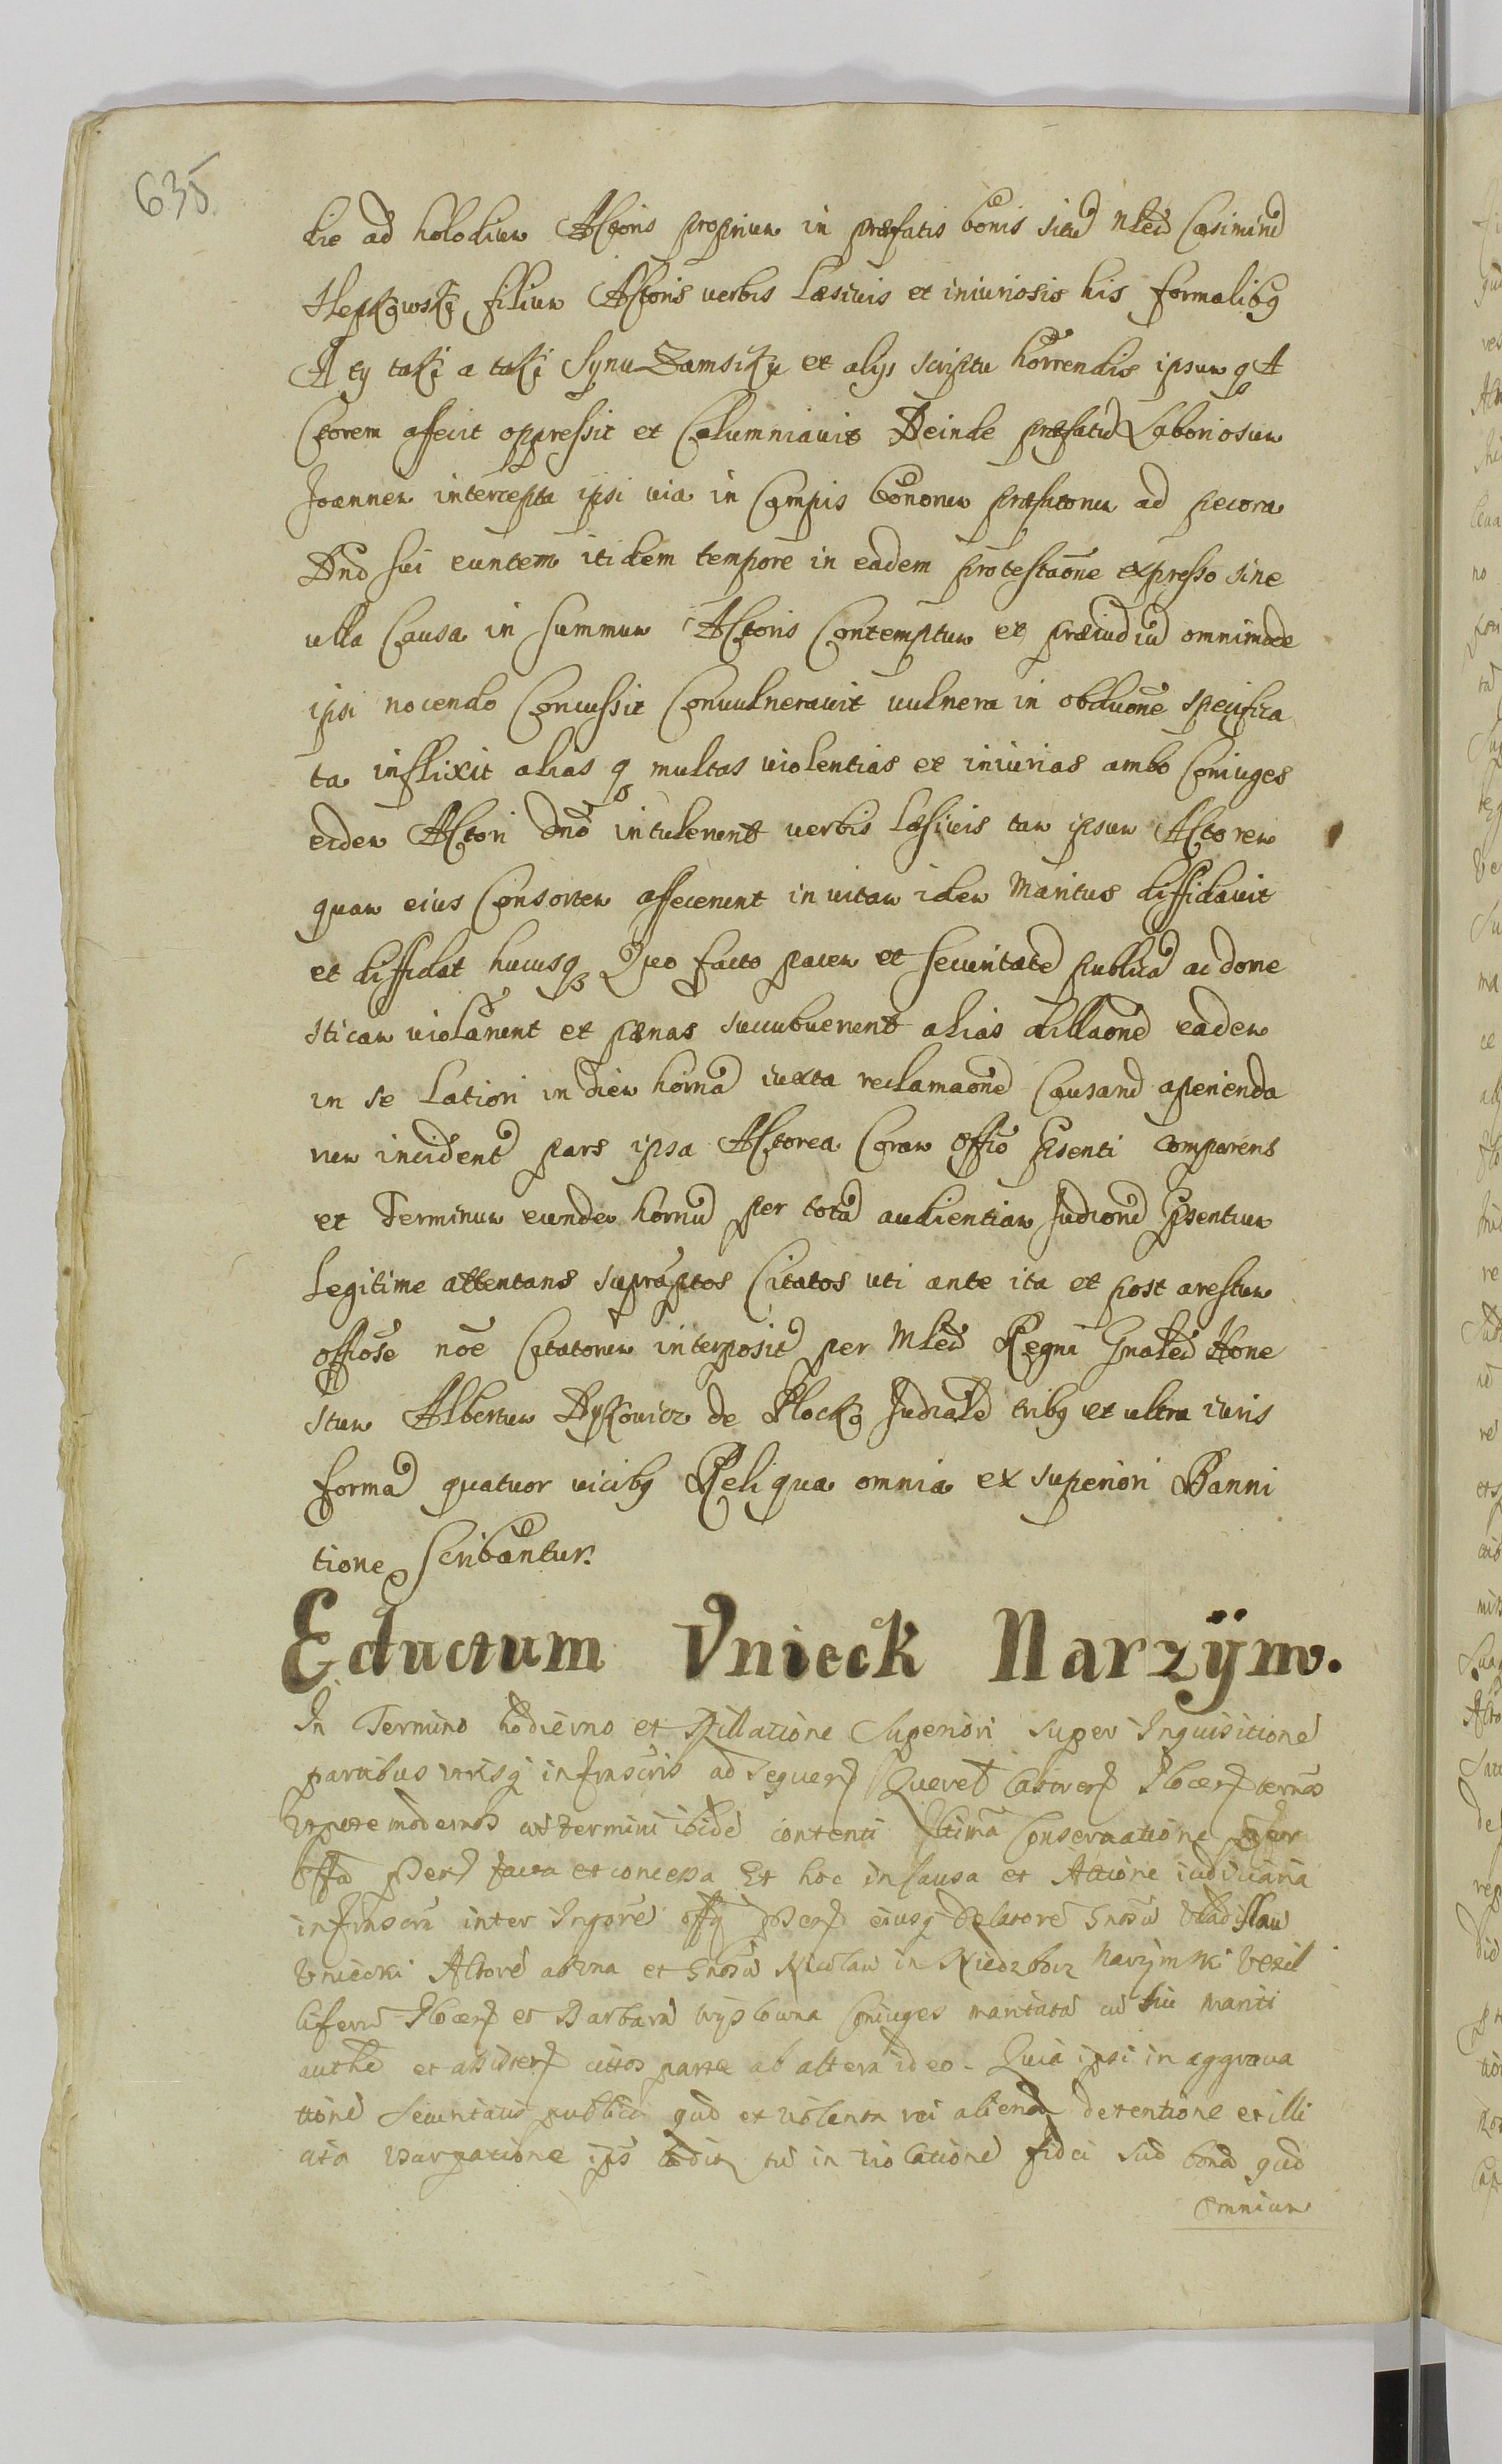 635
die ad holodium Actoris proprium in præfatis bonis situ Nleu Casimiru
Slepkowski filium Actoris verbis læsivis et iniuriosis his formalibq
A ty taki a taki Synu Zamsiku et alijs scriptu horrendis ipsum q A
Ctorem affecit oppressit et Calumniauit Deinde præfatu Laboriosum
Joannem intercepta ipsi via in Campis bonorum præfatorum ad pecora
Dnd sui euntem itidem tempore in eadem protestaone expresso sine
ulla Causa in summum Actoris Contemptum et præiudiu omnimode
ipsi nocendo Concussit Convulnerauit vulnera in obduone specifica
ta inflixit alias q multas violentias et iniurias ambo Coniuges
eidem Actori dno intulerunt verbis læsivis tam ipsum Actorem
quam eius Consortem affecerunt in vitam idem Maritus diffidauit
et diffidat hucusq Quo facto pacem et securitate publica ac dome
sticam violarunt et pænas succubuerunt alias dillaone eadem
in se latiori in diem horna iuxta reclamaone Causaru aperienda
rum incident pars ipsa Actorea Coram offio psenti comparens
et Terminum eundem hornu per tota audientiam Judioru psentium
legitime attentans supraptos Citatos uti ante ita et post arestum
offiose noe Citatorum interposit per Mleu Regni Gnaleu Hone
stum Albertum Dykowicz de Plocko Judiale tribq et ultra iuris
forma quatuor vicibq Reliqua omnia ex superiori Banni
tione scribantur.
Eductum Vnieck Narzÿm.
In Termino hodierno et Dillatione Superiori super Inquisitione
partibus vtrisq infrascris ad sequen Querel Castren Plocen
vtpote modernos termini ibide contenti conseruatione
offm facta et concessa Et hoc in Causa et Actione iudiciaria
infrascra inter offy eiusq Delatore Gnosu Vladislau
Vniecki Actore ab vna et Gnosu Nicolau in Niedzborz Narzijmski Vexil
liferu Plocen et Barbara Coniuges maritata cu sui mariti
authe et assisten cittos parte ab altera ideo - Quia ipsi in aggraua
tione securitatis publica qud et violenta rei aliena detentione et illi
cita vsurpatione in violatione fidei sua bona qud
omnium